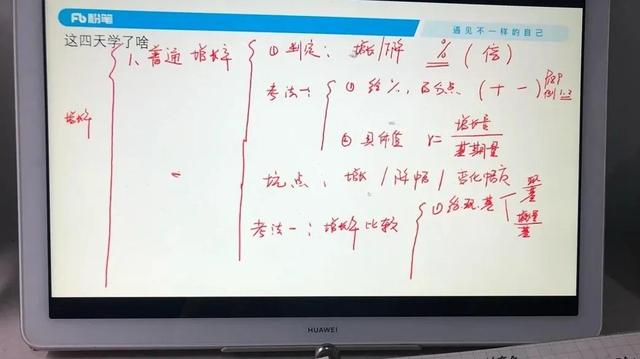 Fb粉笔
遇见不一样的自己
这四天学了啥
增长率
1、普通增长率
① 判定：增长/下降 % (倍)
考法一：① 给%，百分点 (+ -)
② 具体值 r=增长量/基期量
坑点：增长/降幅/变化幅度
考法一：增长率比较
① 给现、基 现/基 增量/基
HUAWEI